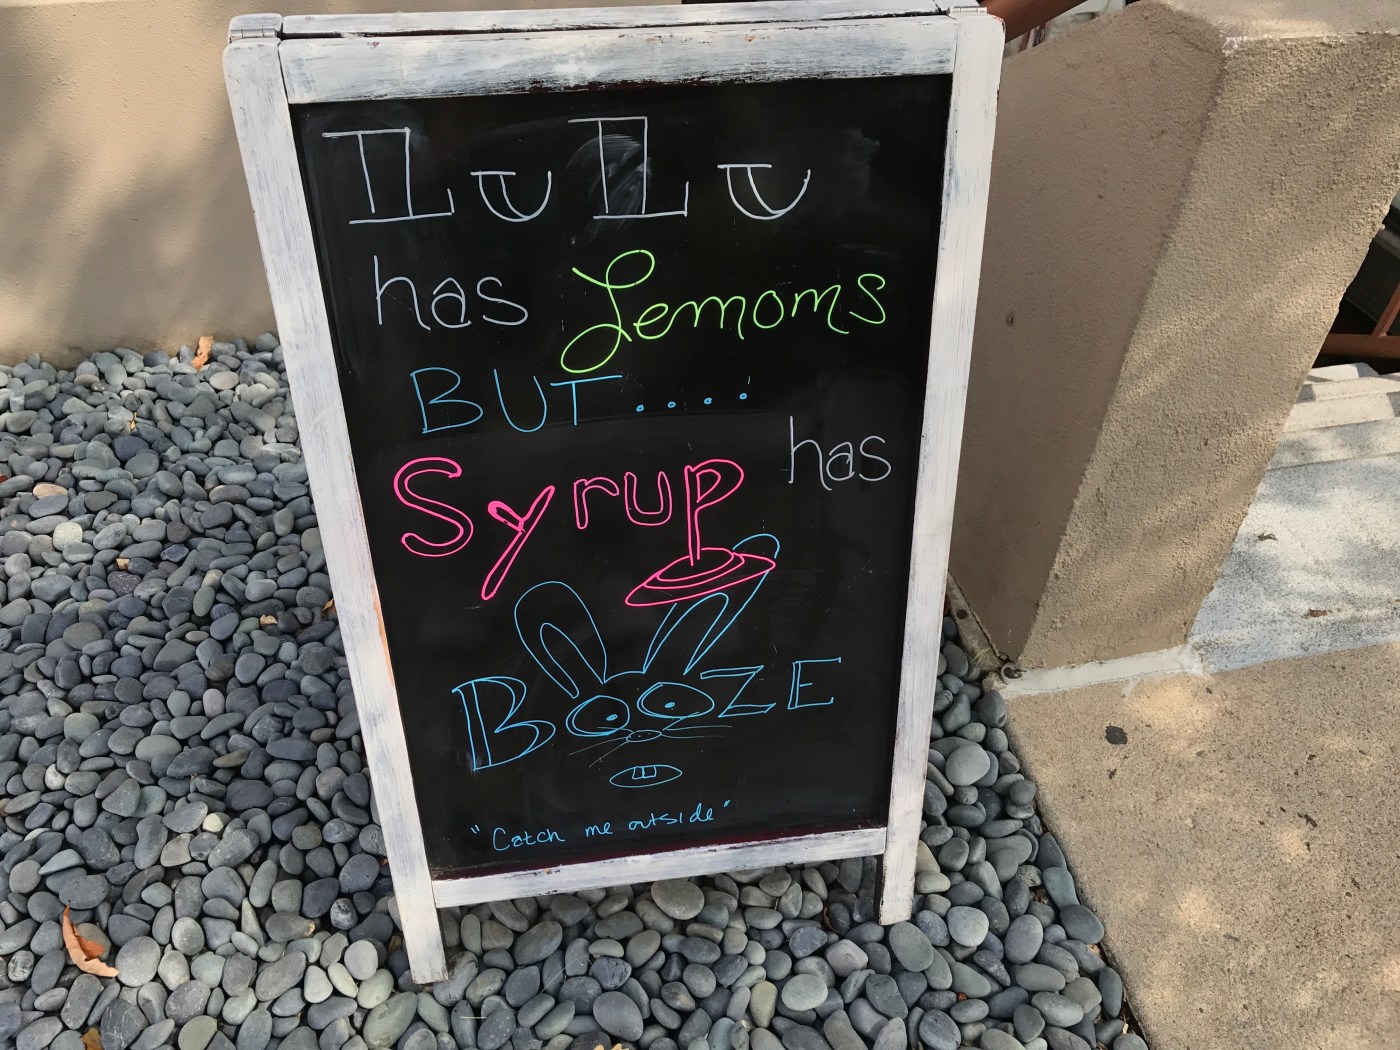 LuLu
has Lemoms
BUT....
Syrup has
BOOZE
"Catch me outside"